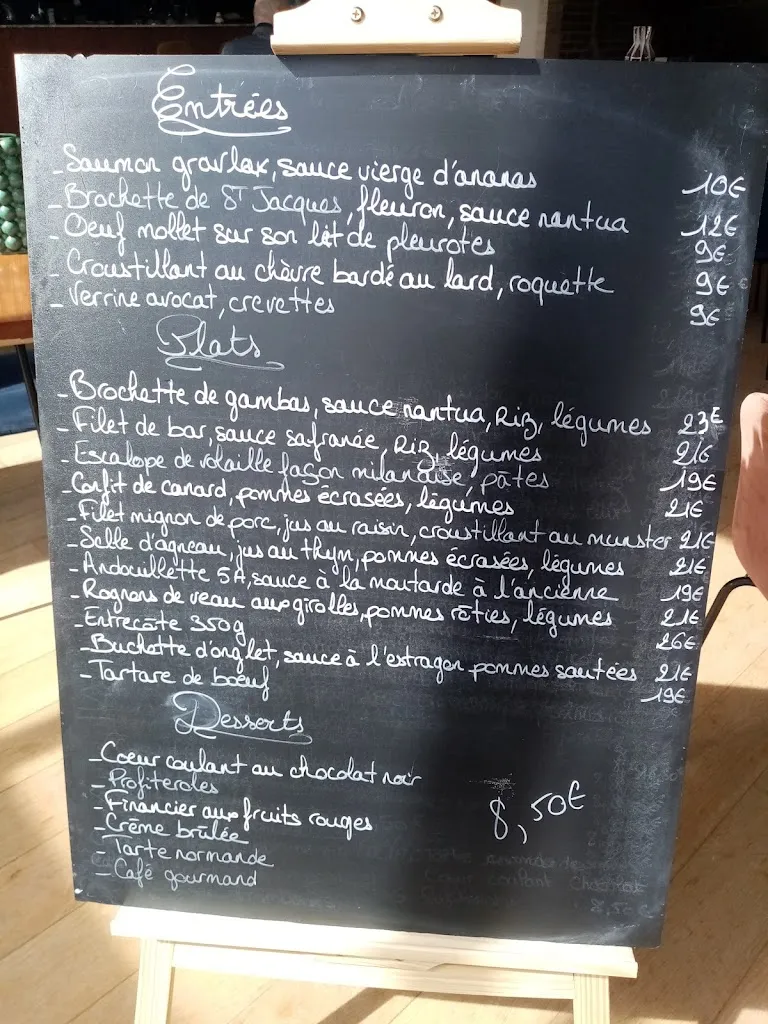 Entrées
- Saumon gravlax, sauce vierge d'ananas 10€
- Brochette de St Jacques, fleuron, sauce nantua 12€
- Oeuf mollet sur son lit de pleurotes 9€
- Croustillant au chèvre bardé au lard, roquette 9€
- Verrine avocat, crevettes 9€
Plats
- Brochette de gambas, sauce nantua, Riz, légumes 23€
- Filet de bar, sauce safranée, Riz, légumes 21€
- Escalope de volaille façon milanaise, pâtes 19€
- Confit de canard, pommes écrasées, légumes 21€
- Filet mignon de porc, jus au raisin, croustillant au munster 21€
- Selle d'agneau, jus au thym, pommes écrasées, légumes 21€
- Andouillette 5A, sauce à la moutarde à l'ancienne 19€
- Rognons de veau aux girolles, pommes rôties, légumes 21€
- Entrecôte 350g 26€
- Buchette d'onglet, sauce à l'estragon pommes sautées 21€
- Tartare de boeuf 19€
Desserts
- Coeur coulant au chocolat noir
- Profiteroles
- Financier aux fruits rouges
- Crème brûlée
- Tarte normande
- Café gourmand
8,50€